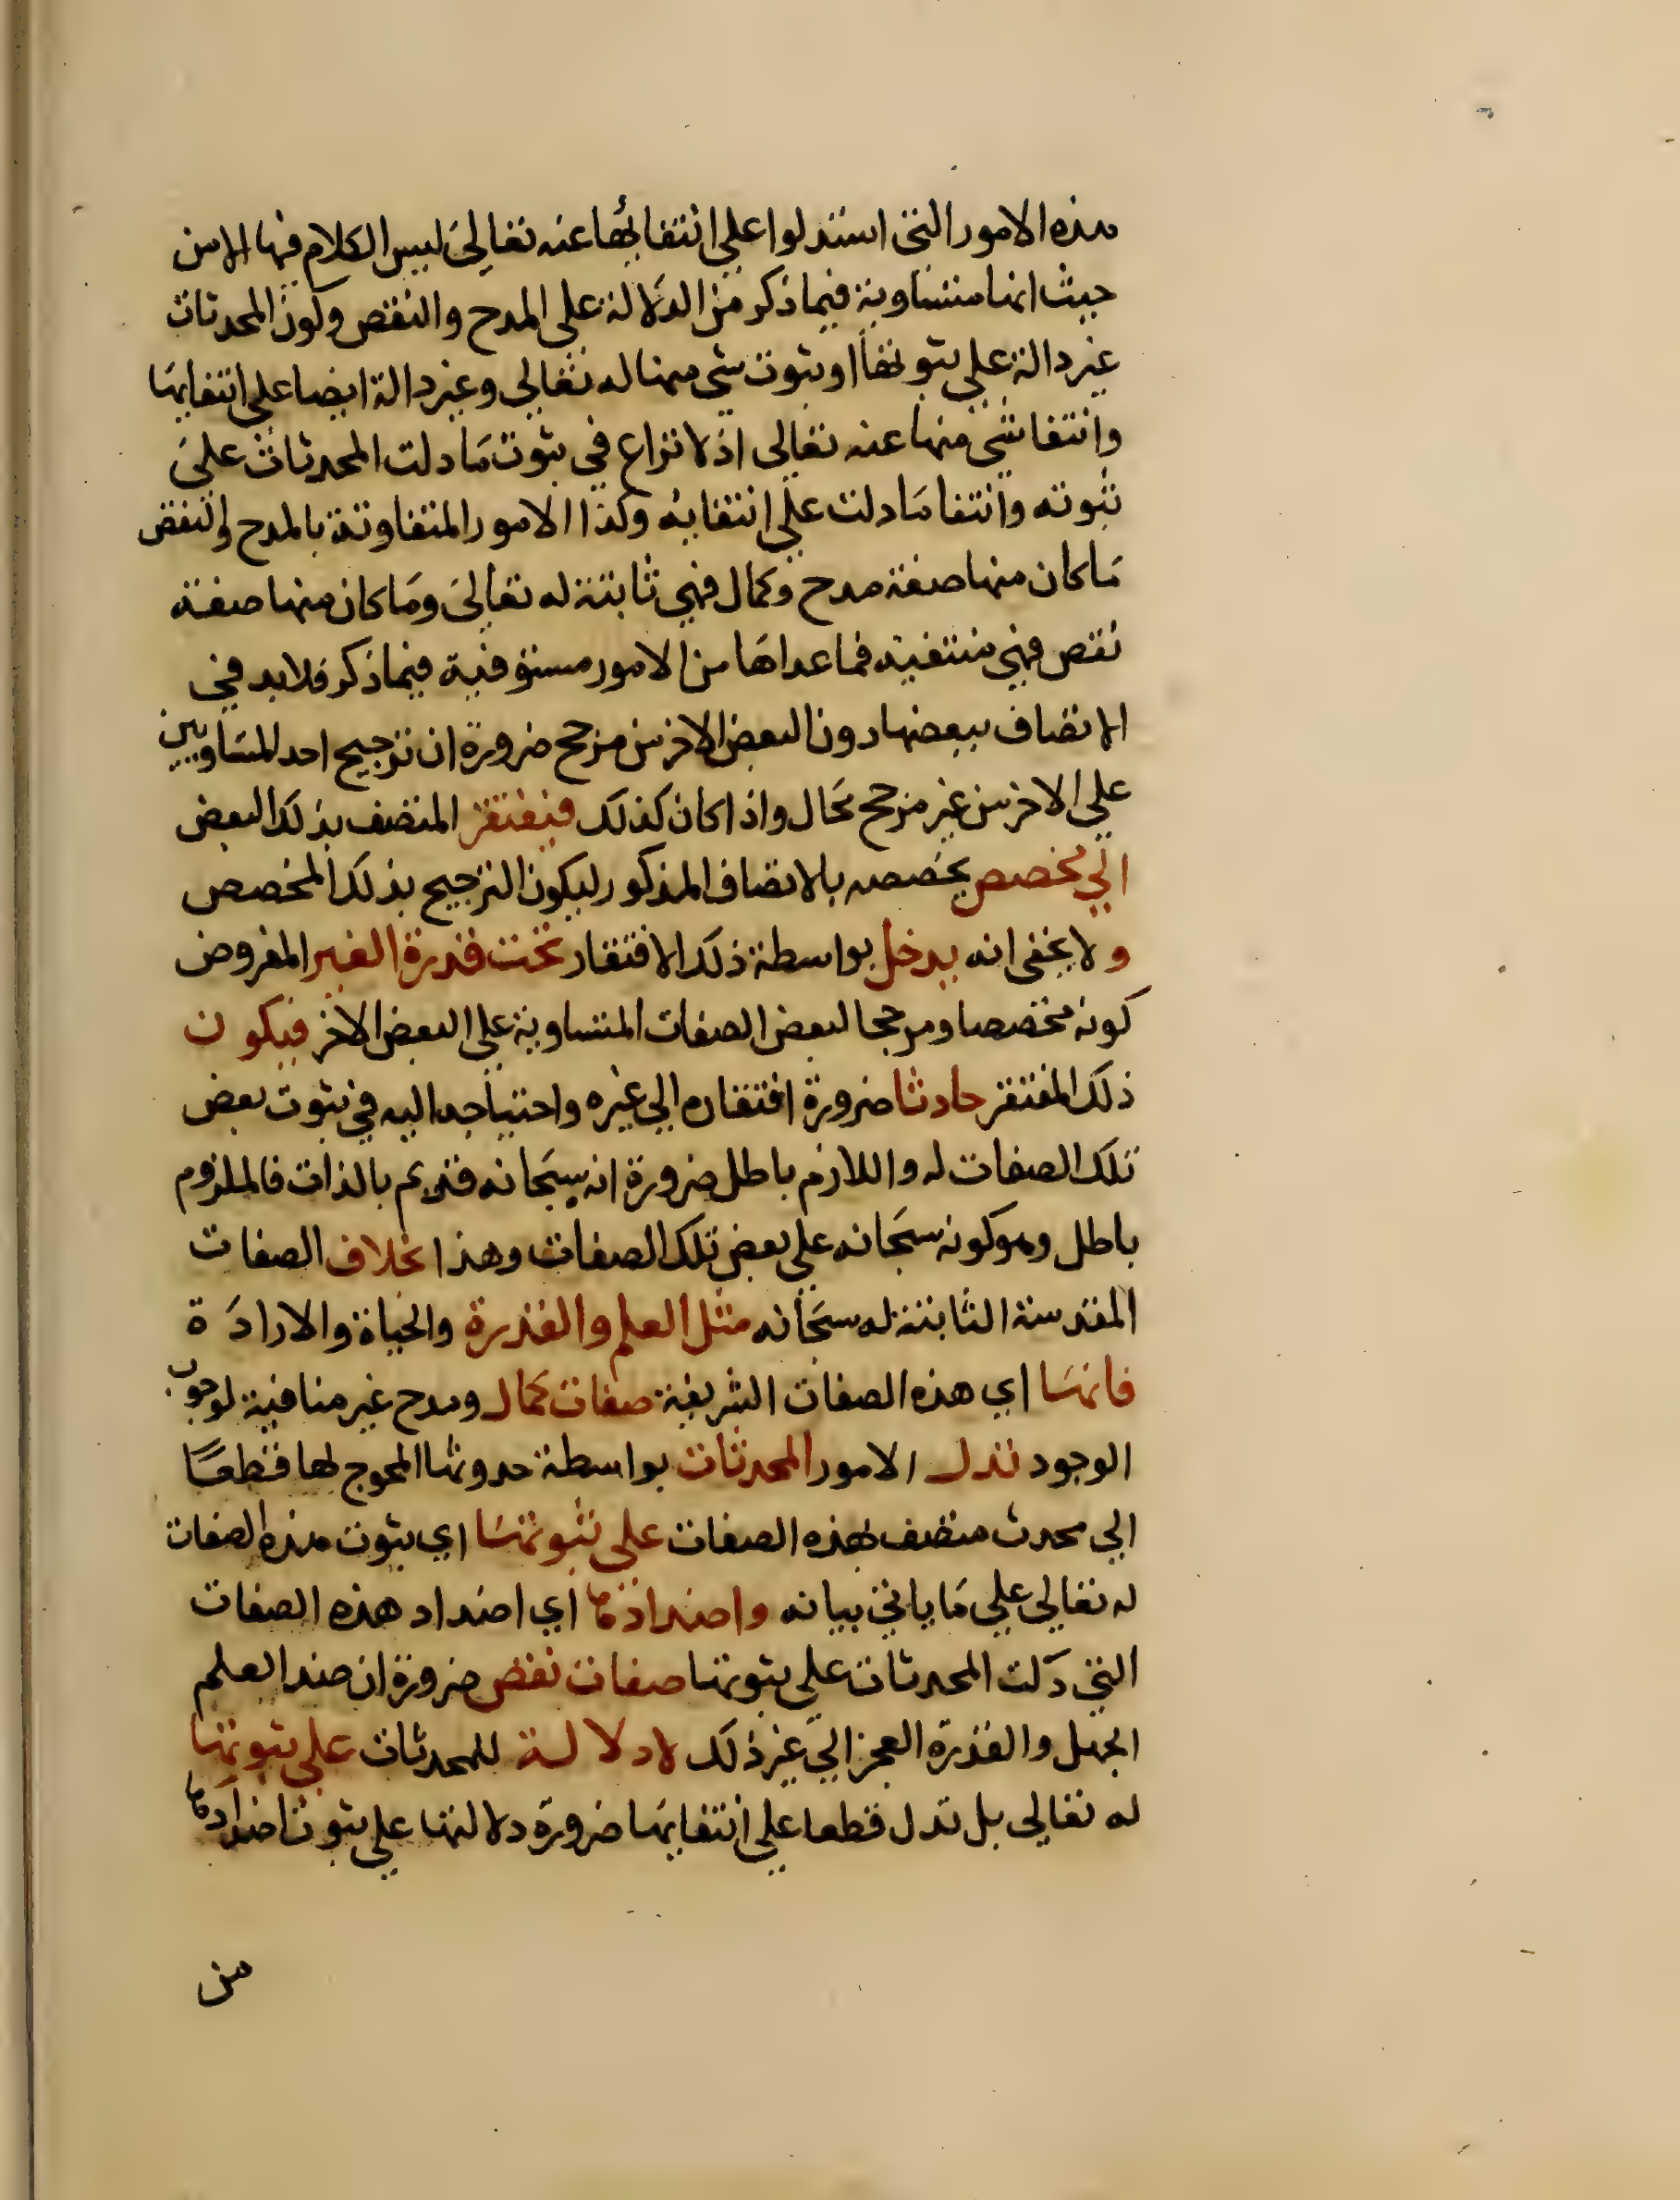 هذه الامور التي استدلوا علي انتفائها عنه تعالي ليس الكلام فيها الا من
حيث انها متساوية فيما ذكر من الدلالة علي المدح والنقص وكون المحدثات
غير دالة علي ثبوتها او ثبوت شي منها له تعالي وغير دالة ايضا علي انتفايها
وانتفا شي منها عنه تعالي اذ لا نزاع في ثبوت ما دلت المحدثات علي
ثبوته وانتفا ما دلت علي انتفايه وكذا الامور المتفاوتة بالمدح والنقص
ما كان منها صفة مدح وكمال فهي ثابتة له تعالي وما كان منها صفة
نقص فهي منتفية فما عداها من الامور مستوفية فيما ذكر فلابد في
الاتصاف ببعضها دون البعض الاخر من مرجح ضرورة ان ترجيح احد المتساويين
علي الاخر من غير مرجح محال واذا كان كذلك فيفتقر المتصف بذلك البعض
الي مخصص يخصصه بالاتصاف المذكور ليكون الترجيح بذلك المخصص
ولا يخفي انه يدخل بواسطة ذلك الافتقار تحت قدرة الغير المفروض
كونه مخصصا ومرجحا لبعض الصفات المتساوية علي البعض الاخر فيكون
ذلك المفتقر حادثا ضرورة افتقاره الي غيره واحتياجه اليه في ثبوت بعض
تلك الصفات له واللازم باطل ضرورة انه سبحانه قديم بالذات فالملزوم
باطل وهو كونه سبحانه علي بعض تلك الصفات وهذا بخلاف الصفات
المقدسة الثابتة له سبحانه مثل العلم والقدرة والحياة والارادة
فانها اي هذه الصفات الشريفة صفات كمال ومدح غير منافية لوجوب
الوجود تدل الامور المحدثات بواسطة حدوثها المحوج لها قطعا
الي محدث متصف بهذه الصفات علي ثبوتها اي ثبوت هذه الصفات
له تعالي علي ما ياتي بيانه واضدادها اي اضداد هذه الصفات
التي دلت المحدثات علي ثبوتها صفات نقص ضرورة ان ضد العلم
الجهل والقدرة العجز الي غير ذلك لا دلالة للمحدثات علي ثبوتها
له تعالي بل تدل قطعا علي انتفايها ضرورة دلالتها علي ثبوت اضدادها
من